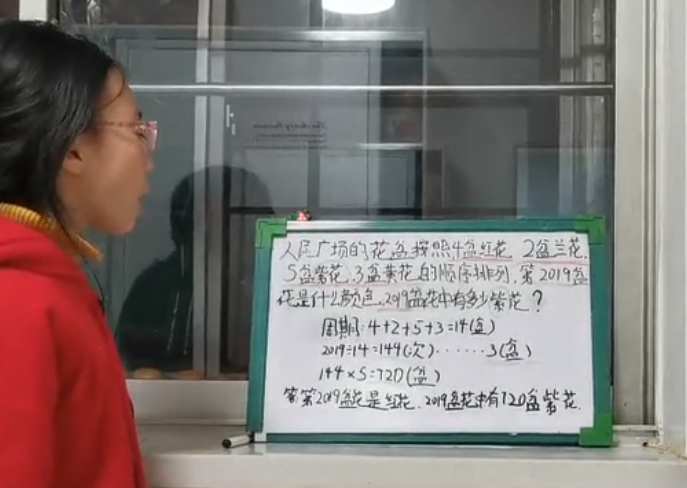 人民广场的花盆按照4盆红花、2盆兰花、
5盆紫花、3盆黄花的顺序排列,第2019盆
花是什么颜色,2019盆花中有多少紫花?
周期:4+2+5+3=14(盆)
2019÷14=144(次)······3(盆)
144×5=720(盆)
答:第2019盆花是红花,2019盆花中有720盆紫花.